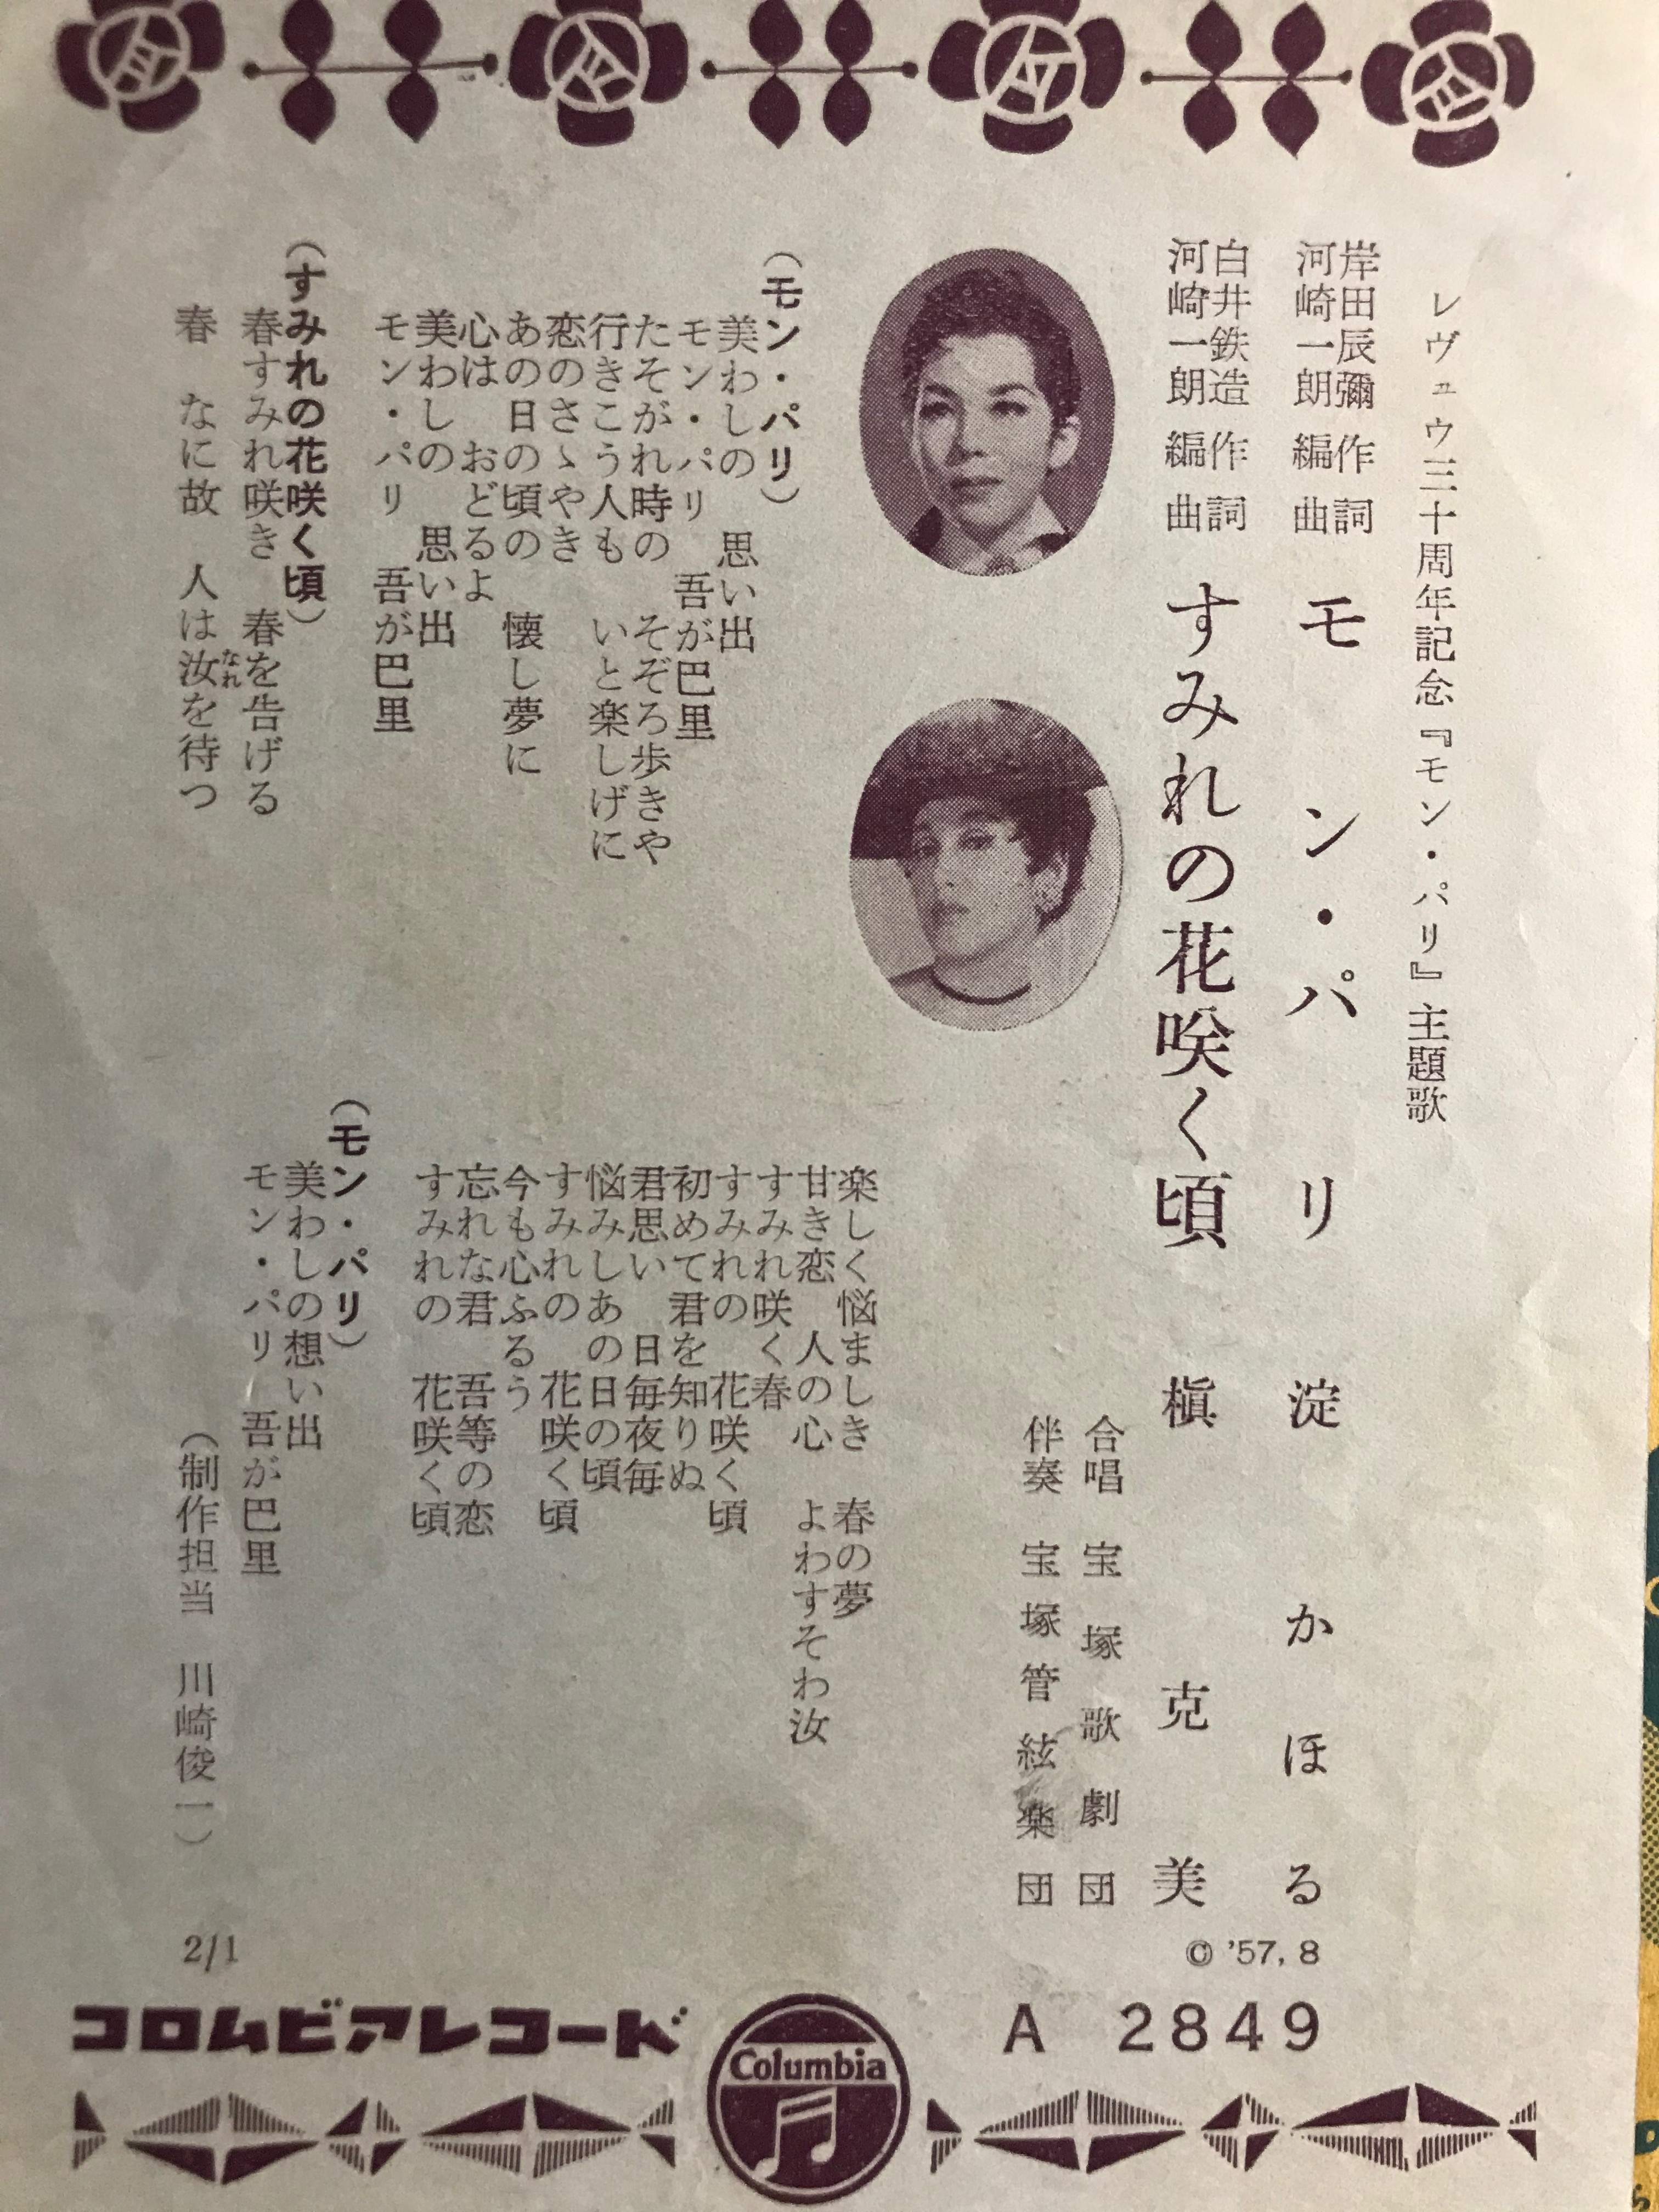 レヴュウ三十周年記念『モン・パリ』主題歌
岸田辰彌 作詞
河崎一朗 編曲
モン・パリ
淀かほる
白井鉄造 作詞
河崎一朗 編曲
すみれの花咲く頃
槇克美
合唱 宝塚歌劇団
伴奏 宝塚管絃楽団
（モン・パリ）
美わしの 思い出
モン・パリ 吾が巴里
たそがれ時の そぞろ歩きや
行きこう人も いと楽しげに
恋のさゝやき
あの日の頃の 懐し夢に
心は おどるよ
美わしの 思い出
モン・パリ 吾が巴里
（すみれの花咲く頃）
春すみれ咲き 春を告げる
春 なに故 人は汝を待つ
なれ
楽しく悩ましき 春の夢
甘き恋 人の心 よわすそわ汝
すみれ咲く春
すみれの 花咲く頃
初めて君を知りぬ
君思い 日毎夜毎
悩みしあの日の頃
すみれの 花咲く頃
今も心ふるう
忘れな君 吾等の恋
すみれの 花咲く頃
（モン・パリ）
美わしの想い出
モン・パリ 吾が巴里
（制作担当 川崎俊一）
2/1
© '57, 8
コロムビアレコード
Columbia
A 2849